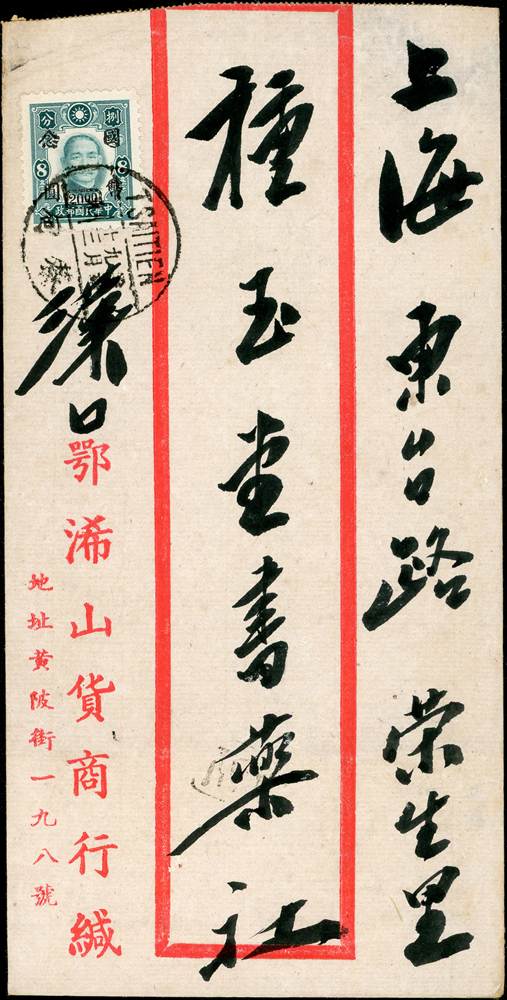 上海東台路榮生里
種玉堂書藥社
漢口
鄂浠山貨商行緘
地址黃陂街一九八號
捌分
國幣
念圓
8 8
2000
中華民國郵政
TSAITIEN
十九
三月
蔡